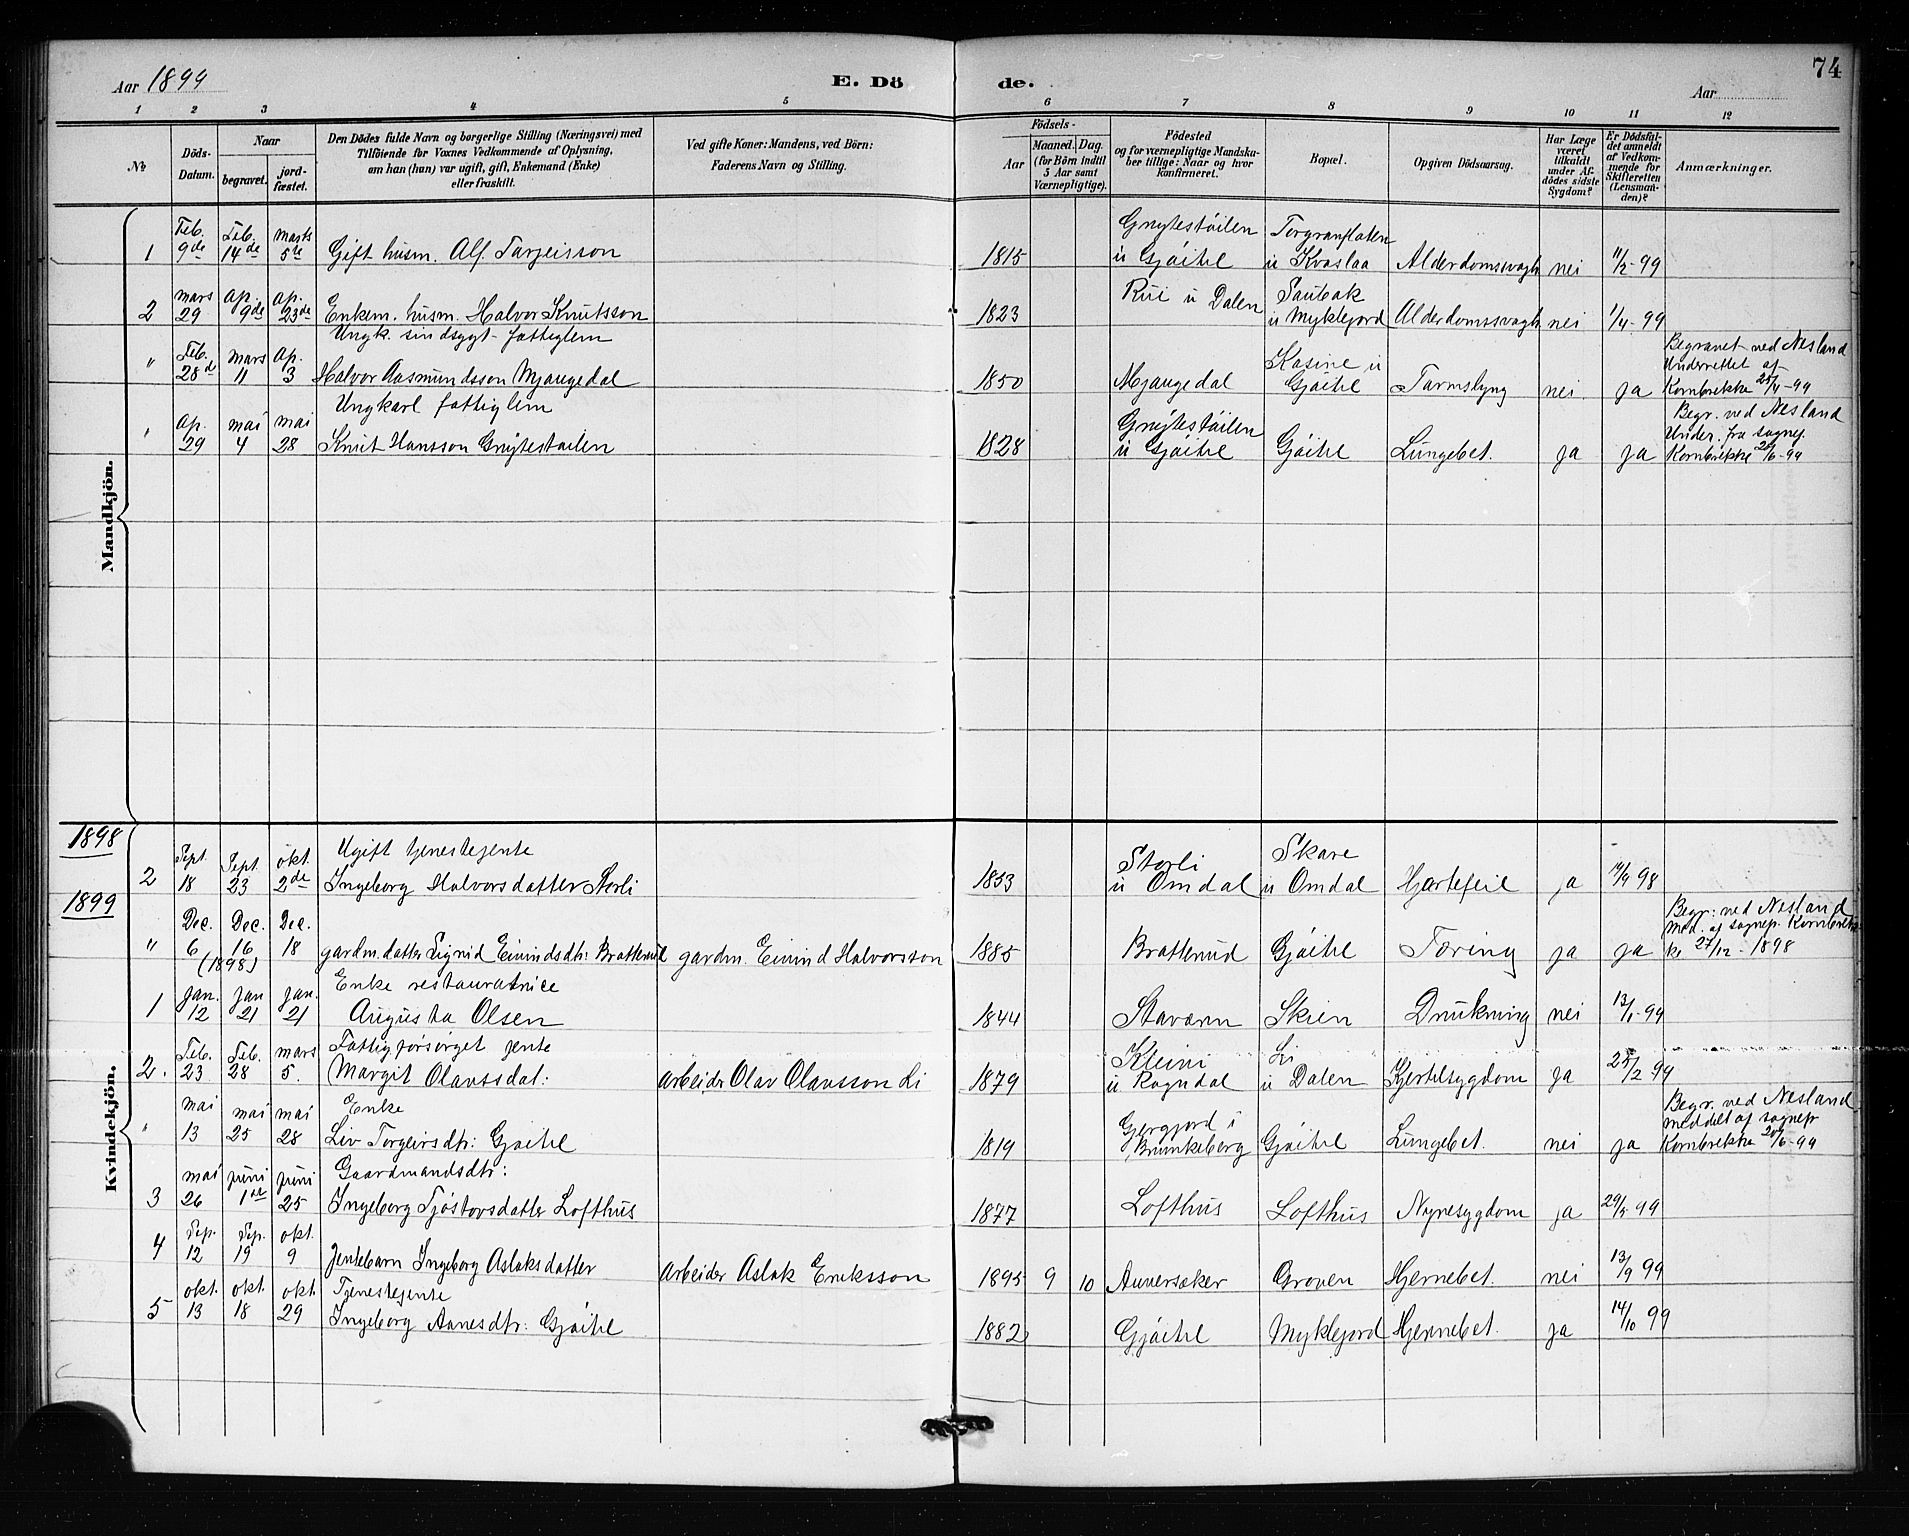 Aar 1899
E. Dö
de.
74
Aar
1 2 3 4 5 6 7 8 9 10 11 12
No
Döds-
Datum.
Naar
begravet.
jord-
fæstet.
Den Dödes fulde Navn og borgerlige Stilling (Næringsvei) med
Tilföiende for Voxnes Vedkommende af Oplysning,
om han (hun) var ugift, gift, Enkemand (Enke)
eller fraskilt.
Ved gifte Koner: Mandens, ved Börn:
Faderens Navn og Stilling.
Födsels-
Aar
Maaned. Dag.
(for Börn indtil
5 Aar samt
Værnepligtige).
Födested
og for værnepligtige Mandska-
ber tillige: Naar og hvor
konfirmeret.
Bopæl.
Opgiven Dödsaarsag.
Har Læge
været
tilkaldt
under Af-
dödes sidste
Sygdom?
Er Dödsfal-
det anmeldt
af Vedkom-
mende for
Skifteretten
(Lensman-
den)?
Anmærkninger.
Mandkjön.
1 Feb. 9de Feb. 14de marts 5te Gift husm. Alf Tarjeisson 1815 Gnytestöilen u Gjöitil u Kvaslaa Alderdomssvagh nei 11/2-99
2 mars 29 Ap. 9de Ap. 23de Enkem. husm. Halvor Knutsson 1823 Rui u Dalen u Myklejord Alderdomssvagh nei 1/4-99
Ungk. sindsygt fattiglem
" Feb. 28d mars 11 Ap. 3 Halvor Aasmundsson Mjaugedal 1850 Mjaugedal u Gjöitil nei ja
Begravet ved Nesland
Underrettet af
Kornbrekke 25/4-99
Ungkarl fattiglem
" Ap. 29 mai 4 mai 28 Knut Hansson Gnytestöilen 1828 Gnytestöilen u Gjöitil Gjöitil Lungebet. ja ja
Begr. ved Nesland
Under. fra sognep.
Kornbrekke
Kvindekjön.
1898
Ugift tjenestejente
2 Sept. 18 Sept 23 okt. 2de Ingeborg Halvorsdatter Storli 1853 Storli u Omdal Skare u Omdal Hjertefeil ja 98
1899
" Dec. 6 Dec. 16 Dec. 18 (1898) gardm. datter Sigrid Eivindsdtr: Bratterud gardm. Eivind Halvorsson 1885 Bratterud Gjöitil Tæring ja ja
Begr: ved Nesland
Med. af sognep. Kornbrek-
ke 27/12-1898
Enke restauratrice
1 Jan. 12 Jan 21 Jan. 21 Augusta Olsen 1844 Stavern Skien Drukning nei 13/1-99
Fattigforsörget jente
2. Feb. 23 Feb. 28 mars 5. Margit Olavsdat: arbeider Olav Olavsson Li 1879 Kleivi u Li u Dalen Kjertelsygdom ja 25/2 99
Enke
" mai 13 mai 25 mai 28 Liv Torgeirsdtr: Gjöitil 1819 i Brunkeberg Gjöitil Lungebet. nei ja
Begr. ved Nesland
meddelt af sognepr
Kornbrekke 20/6-99
Gaardmandsdtr:
3 mai 26 juni 1de juni 25 Ingeborg Tjöstovsdatter Lofthus 1877 Lofthus Lofthus Nyresygdom ja 29/5 99
4 Sep. 12 Sep. 19 okt. 9 Jentebarn Ingeborg Aslaksdatter Arbeider Aslak Eriksson 1895 9 10 Groven Hjernebet. nei 13/9 99
Tjenestejente
5 okt. 13 okt. 18 okt. 29 Ingeborg Aanesdtr: Gjöitil 1882 Gjöitil Myklejord Hjernebet. ja 14/10 99